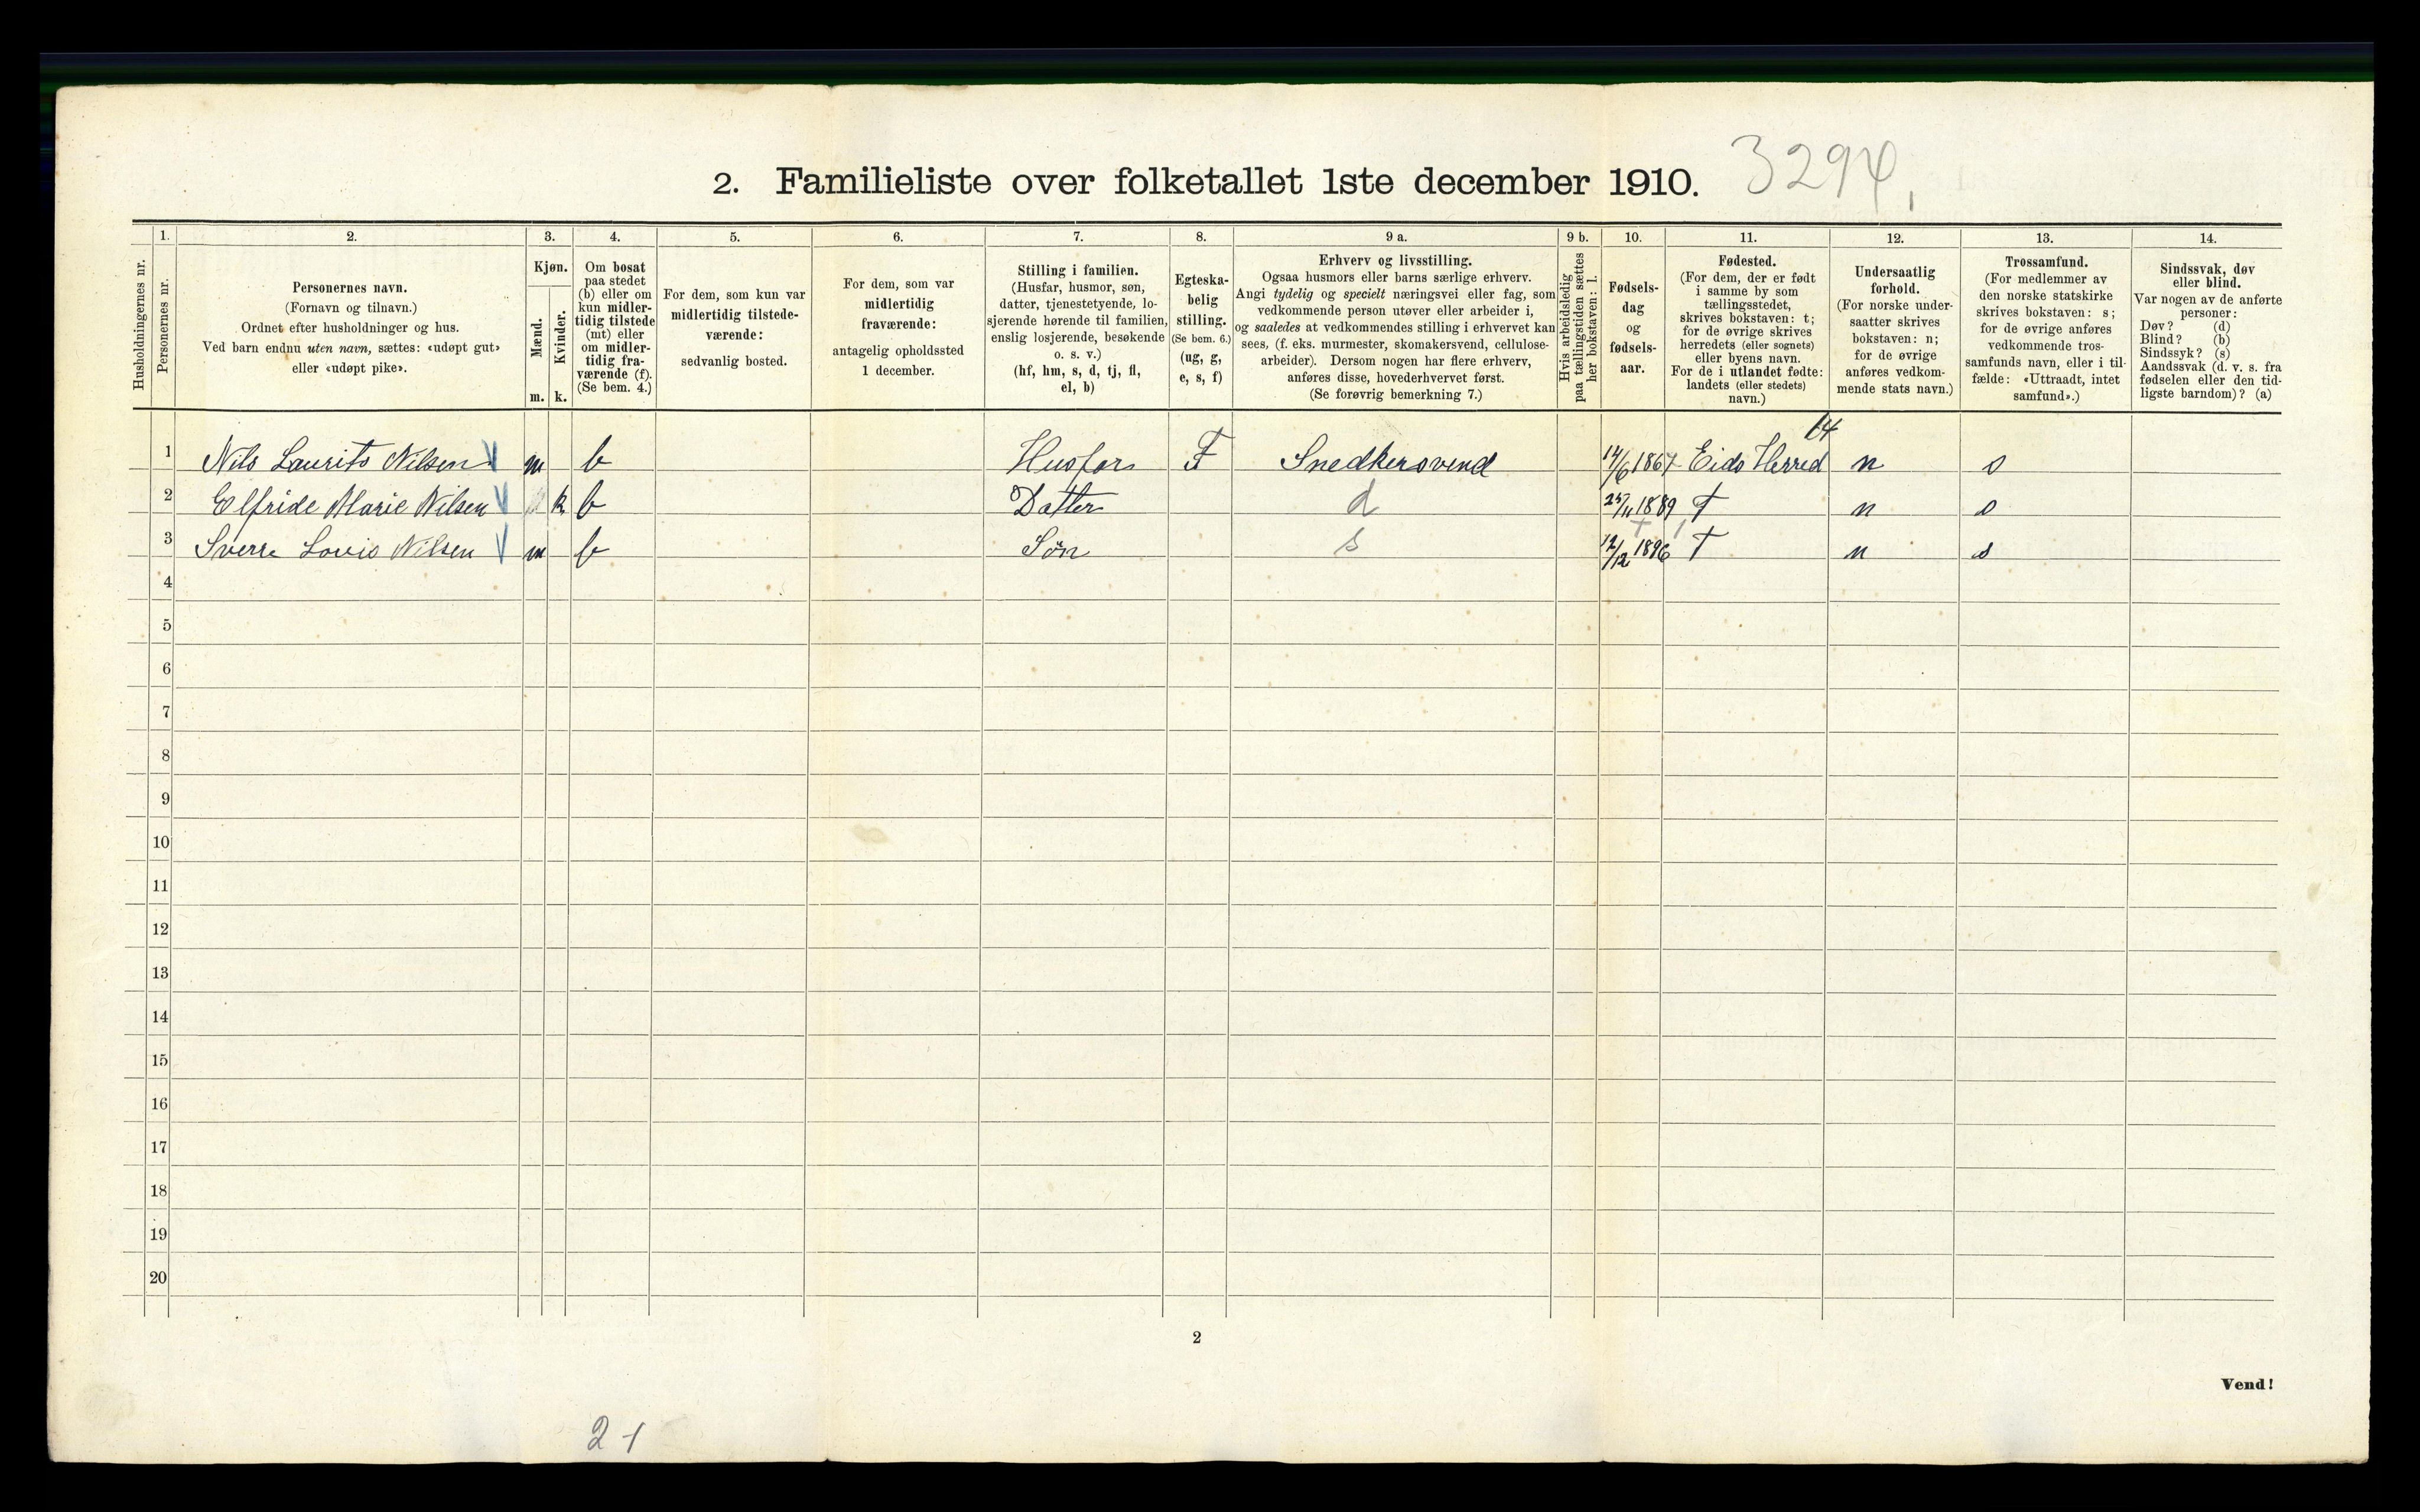 2. Familieliste over folketallet 1ste december 1910. 3294,
1. 2. 3. 4. 5. 6. 7. 8. 9 a. 9 b. 10. 11. 12. 13. 14.
Husholdningernes nr.
Personernes nr.
Personernes navn.
(Fornavn og tilnavn.)
Ordnet efter husholdninger og hus.
Ved barn endnu uten navn, sættes: «udøpt gut»
eller «udøpt pike».
Kjøn.
Mænd.
Kvinder.
m. k.
Om bosat
paa stedet
(b) eller om
kun midler-
tidig tilstede
(mt) eller
om midler-
tidig fra-
værende (f).
(Se bem. 4.)
For dem, som kun var
midlertidig tilstede-
værende:
sedvanlig bosted.
For dem, som var
midlertidig
fraværende:
antagelig opholdssted
1 december.
Stilling i familien.
(Husfar, husmor, søn,
datter, tjenestetyende, lo-
sjerende hørende til familien,
enslig losjerende, besøkende
o. s. v.)
(hf, hm, s, d, tj, fl,
el, b)
Egteska-
belig
stilling.
(Se bem. 6.)
(ug, g,
e, s, f)
Erhverv og livsstilling.
Ogsaa husmors eller barns særlige erhverv.
Angi tydelig og specielt næringsvei eller fag, som
vedkommende person utøver eller arbeider i,
og saaledes at vedkommendes stilling i erhvervet kan
sees, (f. eks. murmester, skomakersvend, cellulose-
arbeider). Dersom nogen har flere erhverv,
anføres disse, hovederhvervet først.
(Se forøvrig bemerkning 7.)
Hvis arbeidsledig
paa tællingstiden sættes
her bokstaven: l.
Fødsels-
dag
og
fødsels-
aar.
Fødested.
(For dem, der er født
i samme by som
tællingsstedet,
skrives bokstaven: t;
for de øvrige skrives
herredets (eller sognets)
eller byens navn.
For de i utlandet fødte:
landets (eller stedets)
navn.)
Undersaatlig
forhold.
(For norske under-
saatter skrives
bokstaven: n;
for de øvrige
anføres vedkom-
mende stats navn.)
Trossamfund.
(For medlemmer av
den norske statskirke
skrives bokstaven: s;
for de øvrige anføres
vedkommende tros-
samfunds navn, eller i til-
fælde: «Uttraadt, intet
samfund».)
Sindssvak, døv
eller blind.
Var nogen av de anførte
personer:
Døv? (d)
Blind? (b)
Sindssyk? (s)
Aandssvak (d. v. s. fra
fødselen eller den tid-
ligste barndom)? (a)
14
1 Nils Laurits Nilsen m b Husfar F Snedkersvend 14/6 1867 Eids Herred n s
2 Elfride Marie Nilsen k b Datter d 25/11 1889 T n s
3 Sverre Lovis Nilsen m b Søn s 12/12 1896 T n s
4
5
6
7
8
9
10
11
12
13
14
15
16
17
18
19
20
2
Vend!
2 1